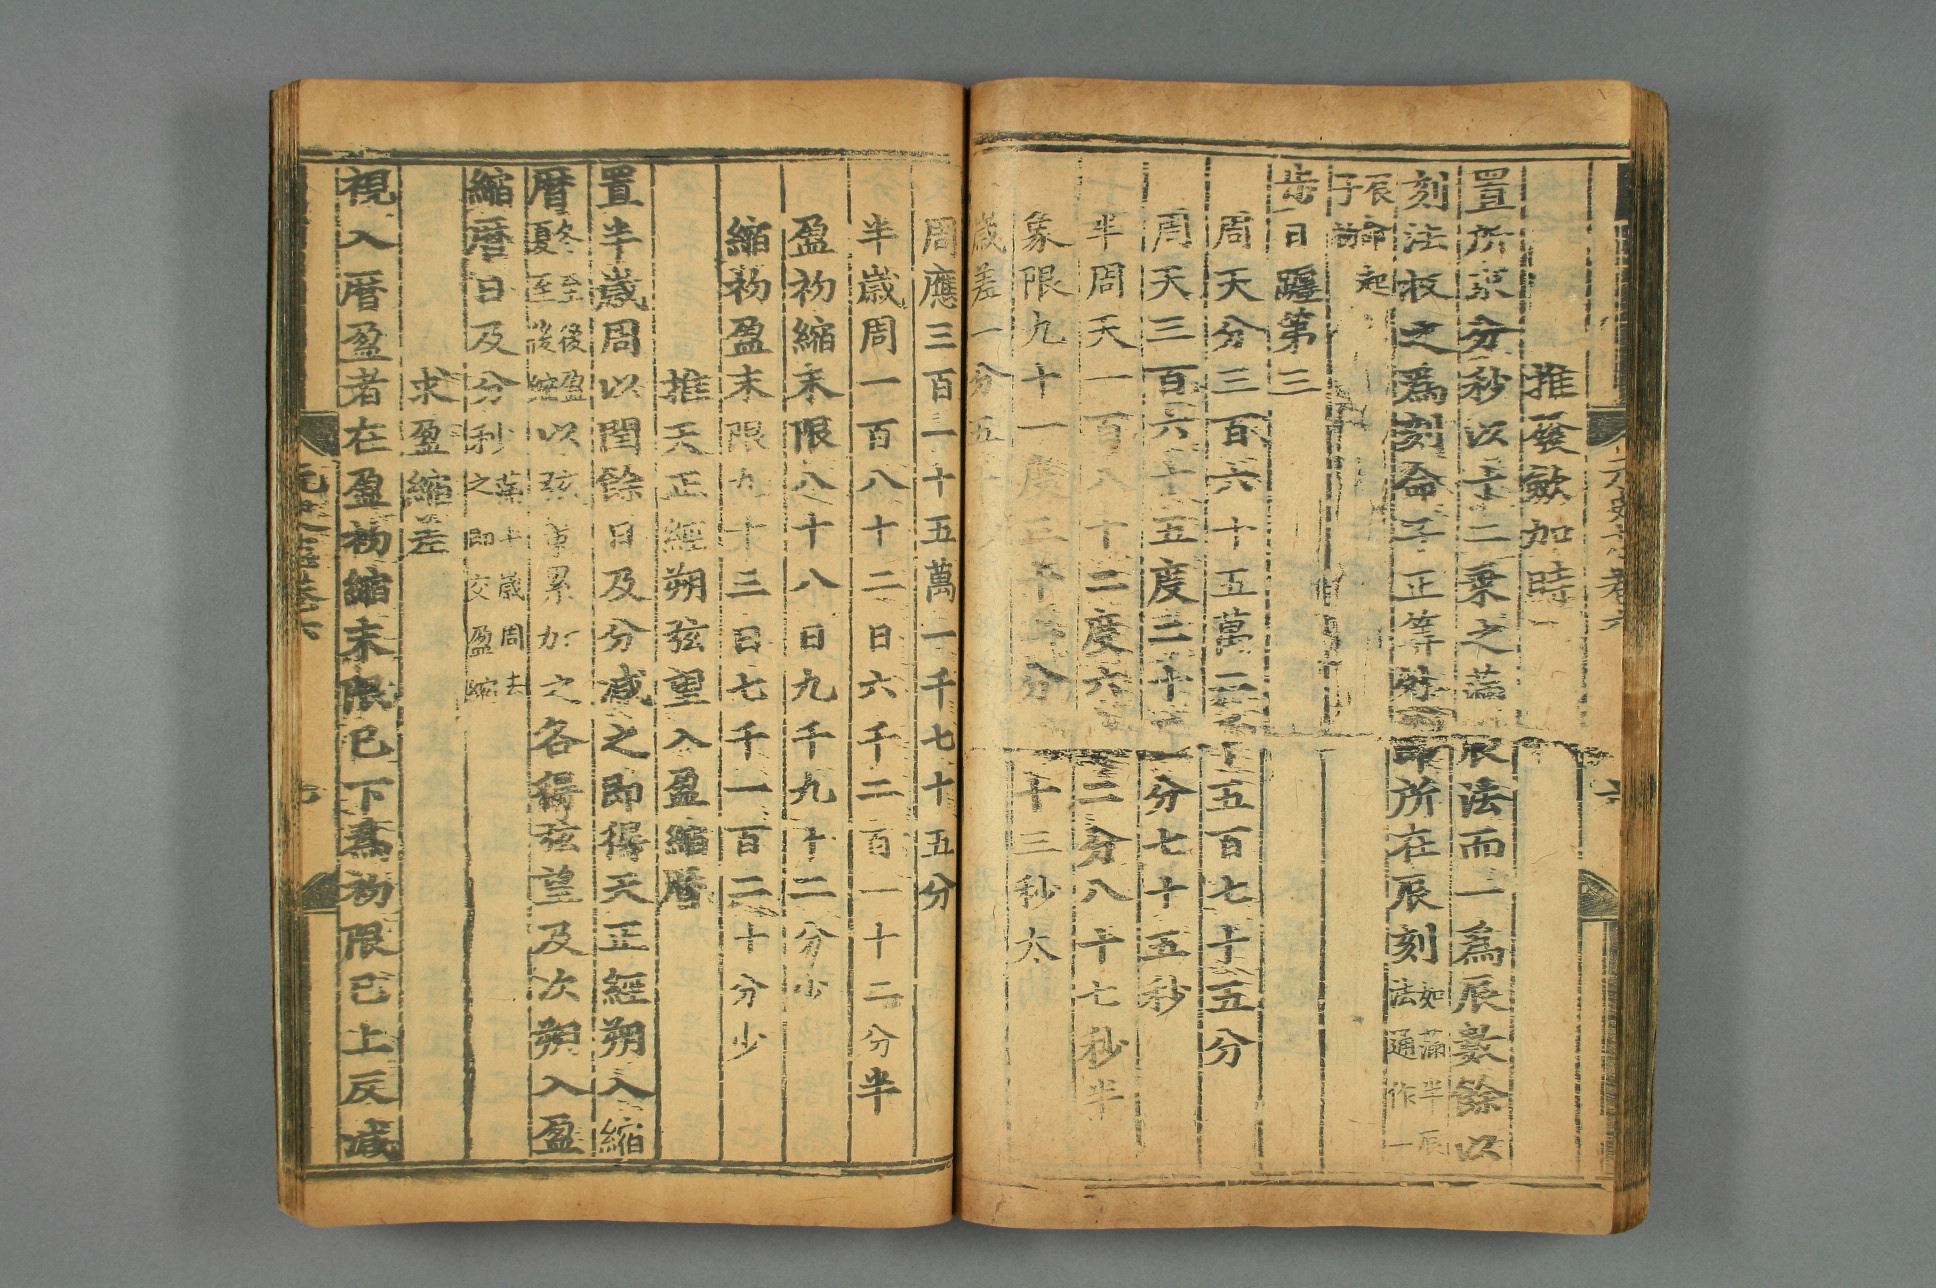 推發斂加時
置所求分秒以十二乘之滿辰法而一爲辰數餘以
刻法收之爲刻命子正筭外即所在辰刻如滿半辰法通作一
辰命起子初
步日躔第三
周天分三百六十五萬二千五百七十五分
周天三百六十五度二十五分七十五秒
半周天一百八十二度六十二分八十七秒半
象限九十一度三十一分四十三秒太
歲差一分五十秒
周應三百一十五萬一千七十五分
半歲周一百八十二日六千二百一十二分半
盈初縮末限八十八日九千九十二分少
縮初盈末限九十三日七千一百二十分少
推天正經朔弦望入盈縮曆
置半歲周以閏餘日及分減之即得天正經朔入縮
曆冬至後盈夏至後縮以弦策累加之各得弦望及次朔入盈
縮曆日及分秒滿半歲周去之即交盈縮
求盈縮差
視入曆盈者在盈初縮末限已下爲初限已上反減
元史志卷六
七